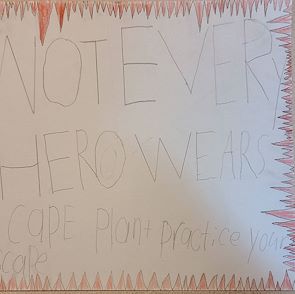 NOT EVERY
HERO WEARS
CAPE Plan+ practice your
scape